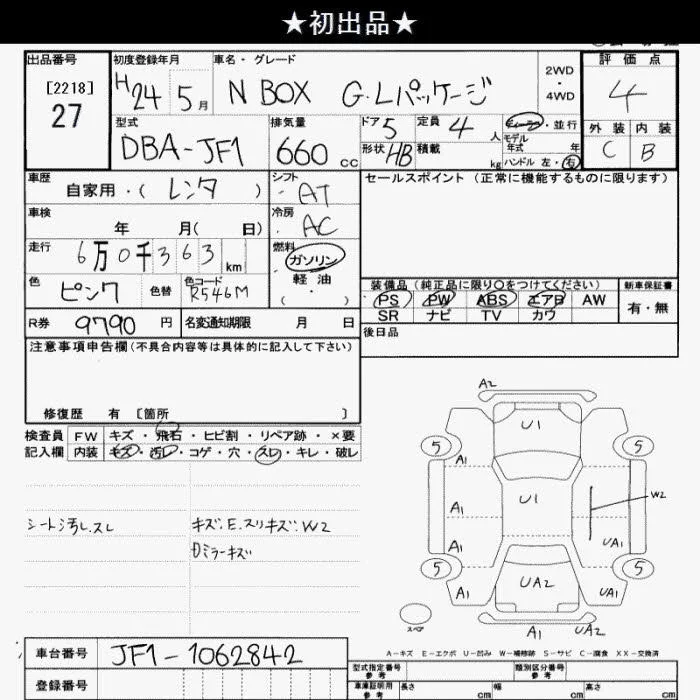 ★初出品★
出品番号
[2218]
27
初度登録年月
H 24 5 月
車名・グレード
N BOX G・Lパッケージ
2WD
・
4WD
評価点
4
外装 内装
C B
型式
DBA-JF1
排気量
660 CC
ドア 5
定員 4 人
形状 HB
積載 kg
ディーラー・並行
モデル
年式 年
ハンドル 左・右
車歴
自家用・( レンタ )
シフト
AT
車検
年 月( 日)
冷房
AC
走行
6万0千363 km
燃料
ガソリン
軽油
( ・ )
色
ピンク
色替
色コード
R546M
R券
9790 円
名変通知期限 月 日
セールスポイント (正常に機能するものに限ります)
装備品 (純正品に限り〇をつけてください)
PS PW ABS エアB AW
SR ナビ TV カワ
新車保証書
有・無
後日品
注意事項申告欄(不具合内容等は具体的に記入して下さい)
修復歴 有 [箇所 ]
検査員
記入欄
FW キズ・飛石・ヒビ割・リペア跡・×要
内装 キズ・汚レ・コゲ・穴・スレ・キレ・破レ
シート汚レ.スレ
キズ.E.スリキズ.W2
ミラーキズ
A2
U1
5
5
A1
A1
U1
W2
A1
UA1
5
5
A1
UA2
UA1
スペア
A1
UA2
A-キズ E-エクボ U-凹み W-補修跡 S-サビ C-腐食 XX-交換済
車台番号
JF1-1062842
登録番号
型式指定番号
参考
類別区分番号
参考
車庫証明用
参考
長さ cm
幅 cm
高さ cm